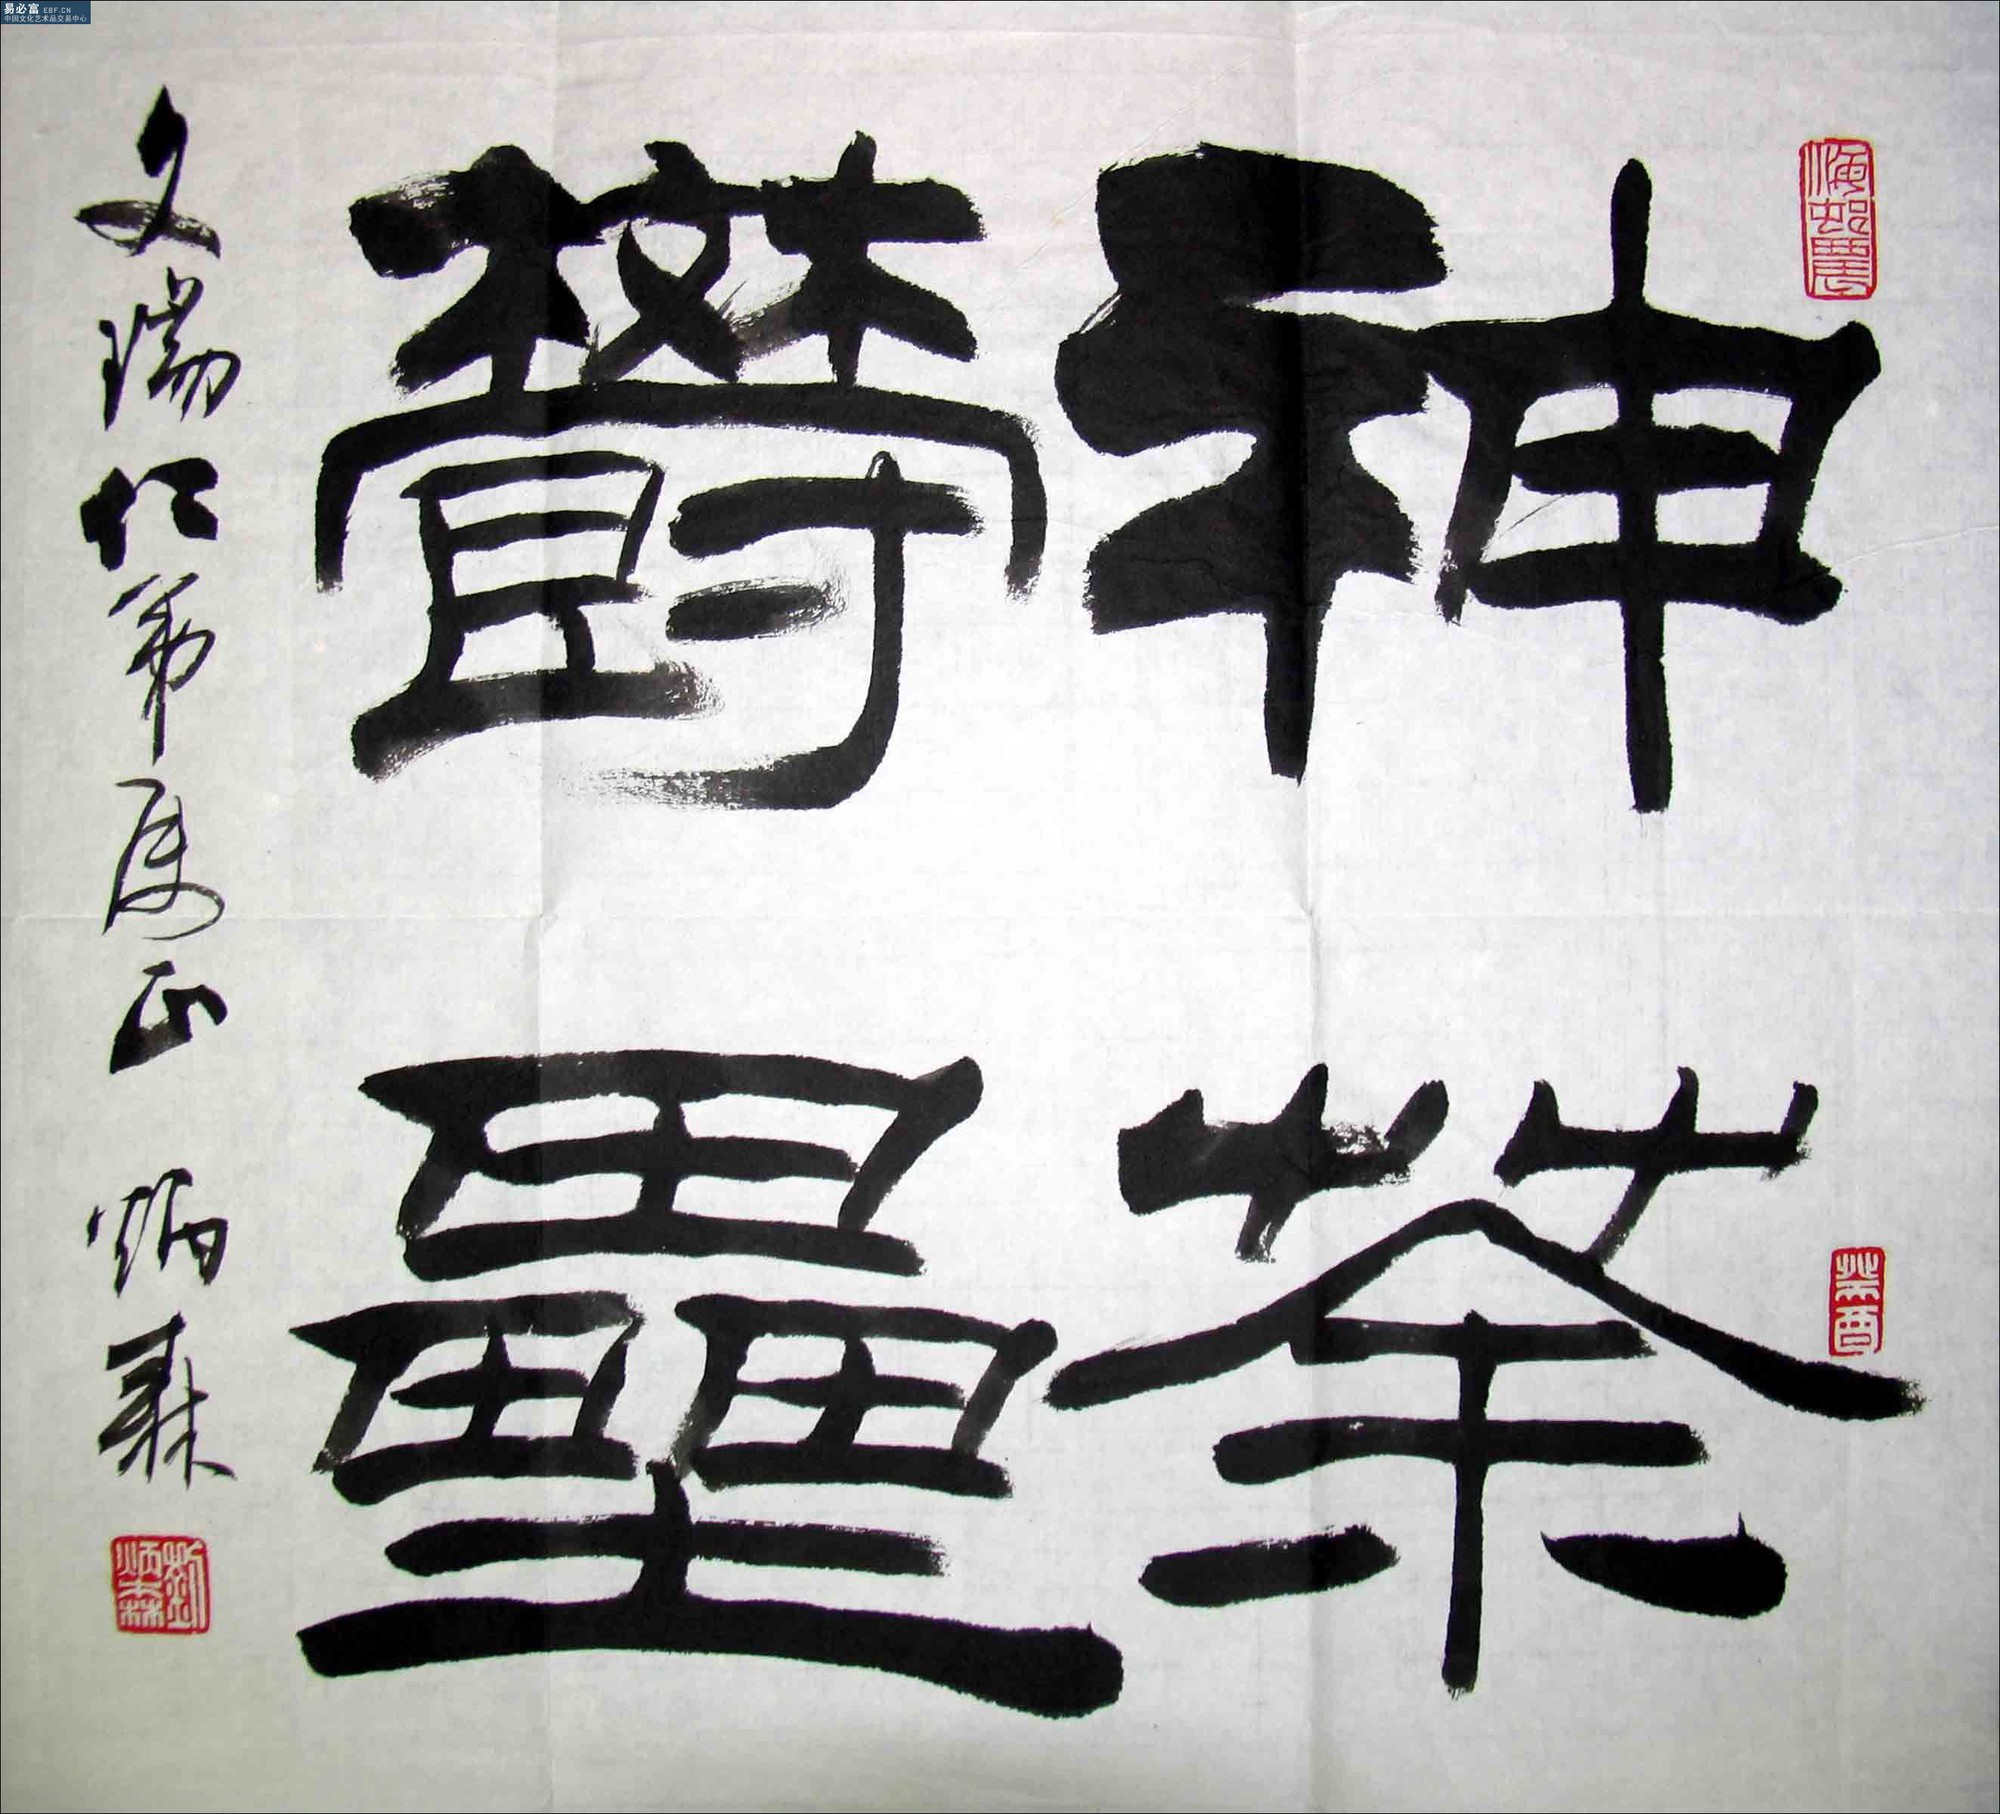 易必富 EBF.CN
中国文化艺术品交易中心
神荼
鬱壘
文瑞仁弟属正 炳森
癸酉
劉炳森